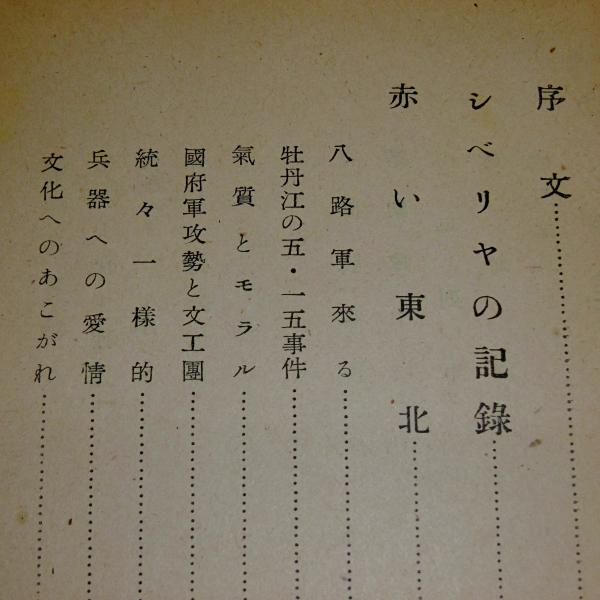 序文
シベリヤの記錄
赤い東北
八路軍來る
牡丹江の五・一五事件
氣質とモラル
國府軍攻勢と文工團
統々一樣的
兵器への愛情
文化へのあこがれ